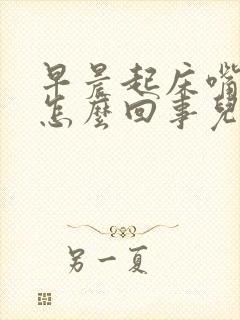 早晨起床嘴
怎麼回事兒
另一夏